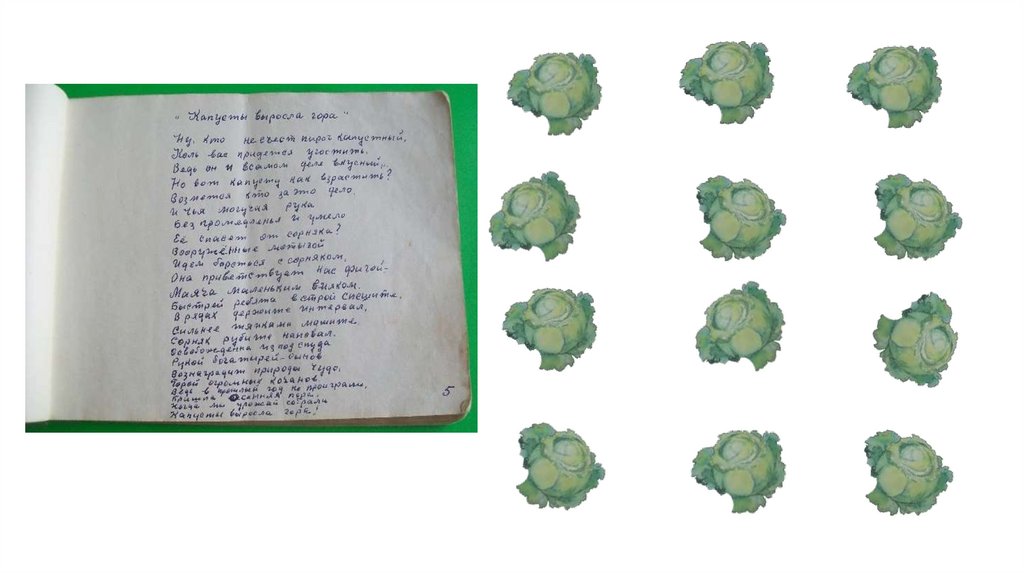 "Капусты выросла гора"
Ну, кто не съест пирог капустный,
Коль вас придется угостить.
Ведь он и в самом деле вкусный,
Но вот капусту как взрастить?
Возмется кто за это дело,
И чья могучая рука
Без промедленья и умело
Её спасет от сорняка?
Вооруженные мотыгой
Идем бороться с сорняком,
Она приветствует нас фигой-
Маяча маленьким вилком.
Быстрей ребята в строй спешите,
В рядах держите интервал,
Сильнее тяпками машите
Сорняк рубите наповал.
Освобожденна из под спуда
Рукой богатырей-сынов
Вознаградит природы чудо,
Горой огромных кочанов.
Ведь в прошлый год не проиграли,
Пришла осенняя пора,
Когда мы урожай собрали
Капусты выросла гора!
5